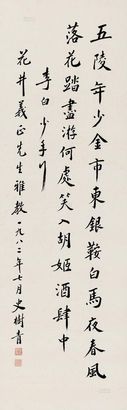 五陵年少金市東銀鞍白馬夜春風
落花踏盡游何處笑入胡姬酒肆中
李白少年行
花井義正先生雅教一九八二年七月史樹青